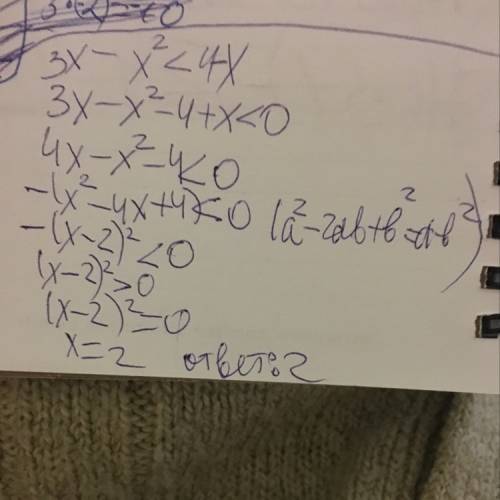 3x - x² < 4x
3x - x² - 4 + x < 0
4x - x² - 4 < 0
-(x² - 4x + 4) < 0 (a² - 2ab + b² = a-b²)
-(x-2)² < 0
(x-2)² > 0
(x-2)² = 0
x = 2 ответ: 2